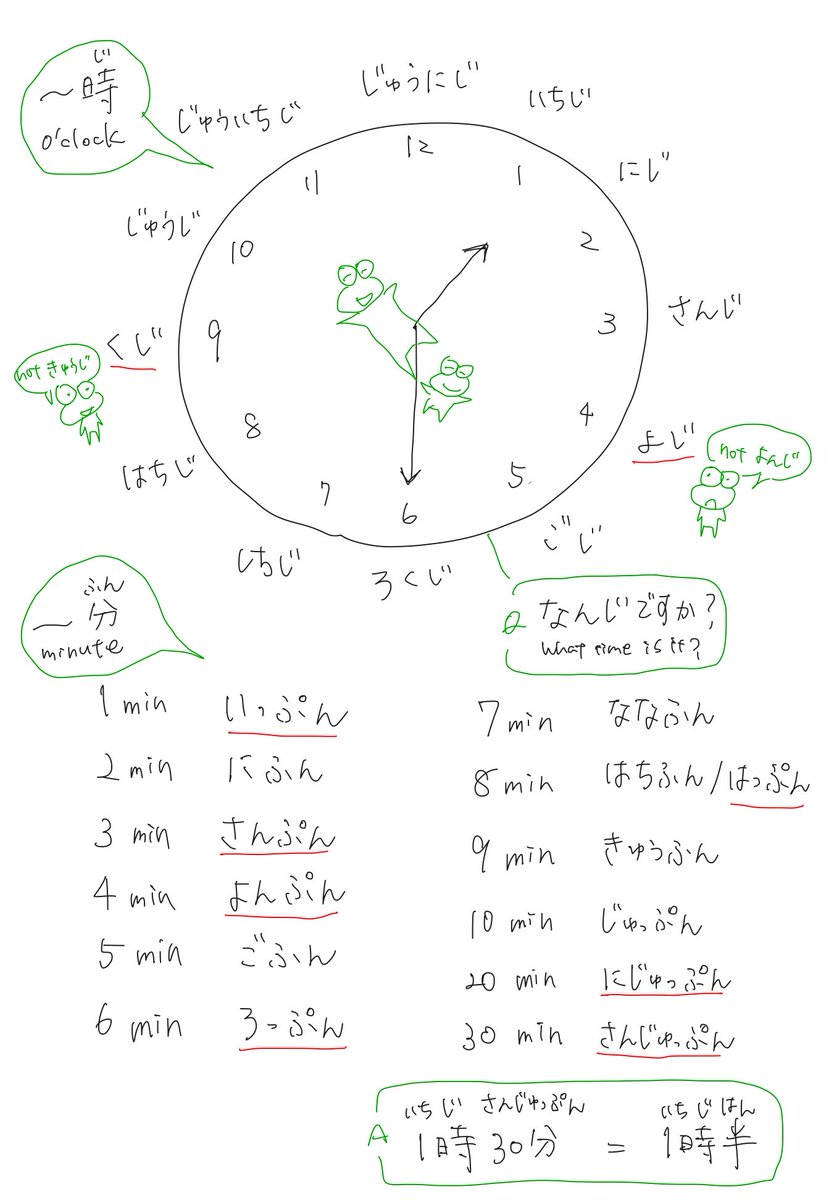 じ
〜時
o'clock
じゅうにじ
いちじ
じゅういちじ
にじ
じゅうじ
さんじ
くじ
not きゅうじ
よじ
not よんじ
はちじ
ごじ
しちじ
ろくじ
12
11
1
10
2
9
3
8
4
7
5
6
Q なんじですか?
What time is it?
ふん
〜分
minute
1 min いっぷん
2 min にふん
3 min さんぷん
4 min よんぷん
5 min ごふん
6 min ろっぷん
7 min ななふん
8 min はちふん/はっぷん
9 min きゅうふん
10 min じゅっぷん
20 min にじゅっぷん
30 min さんじゅっぷん
いちじ さんじゅっぷん いちじはん
A 1時30分 = 1時半